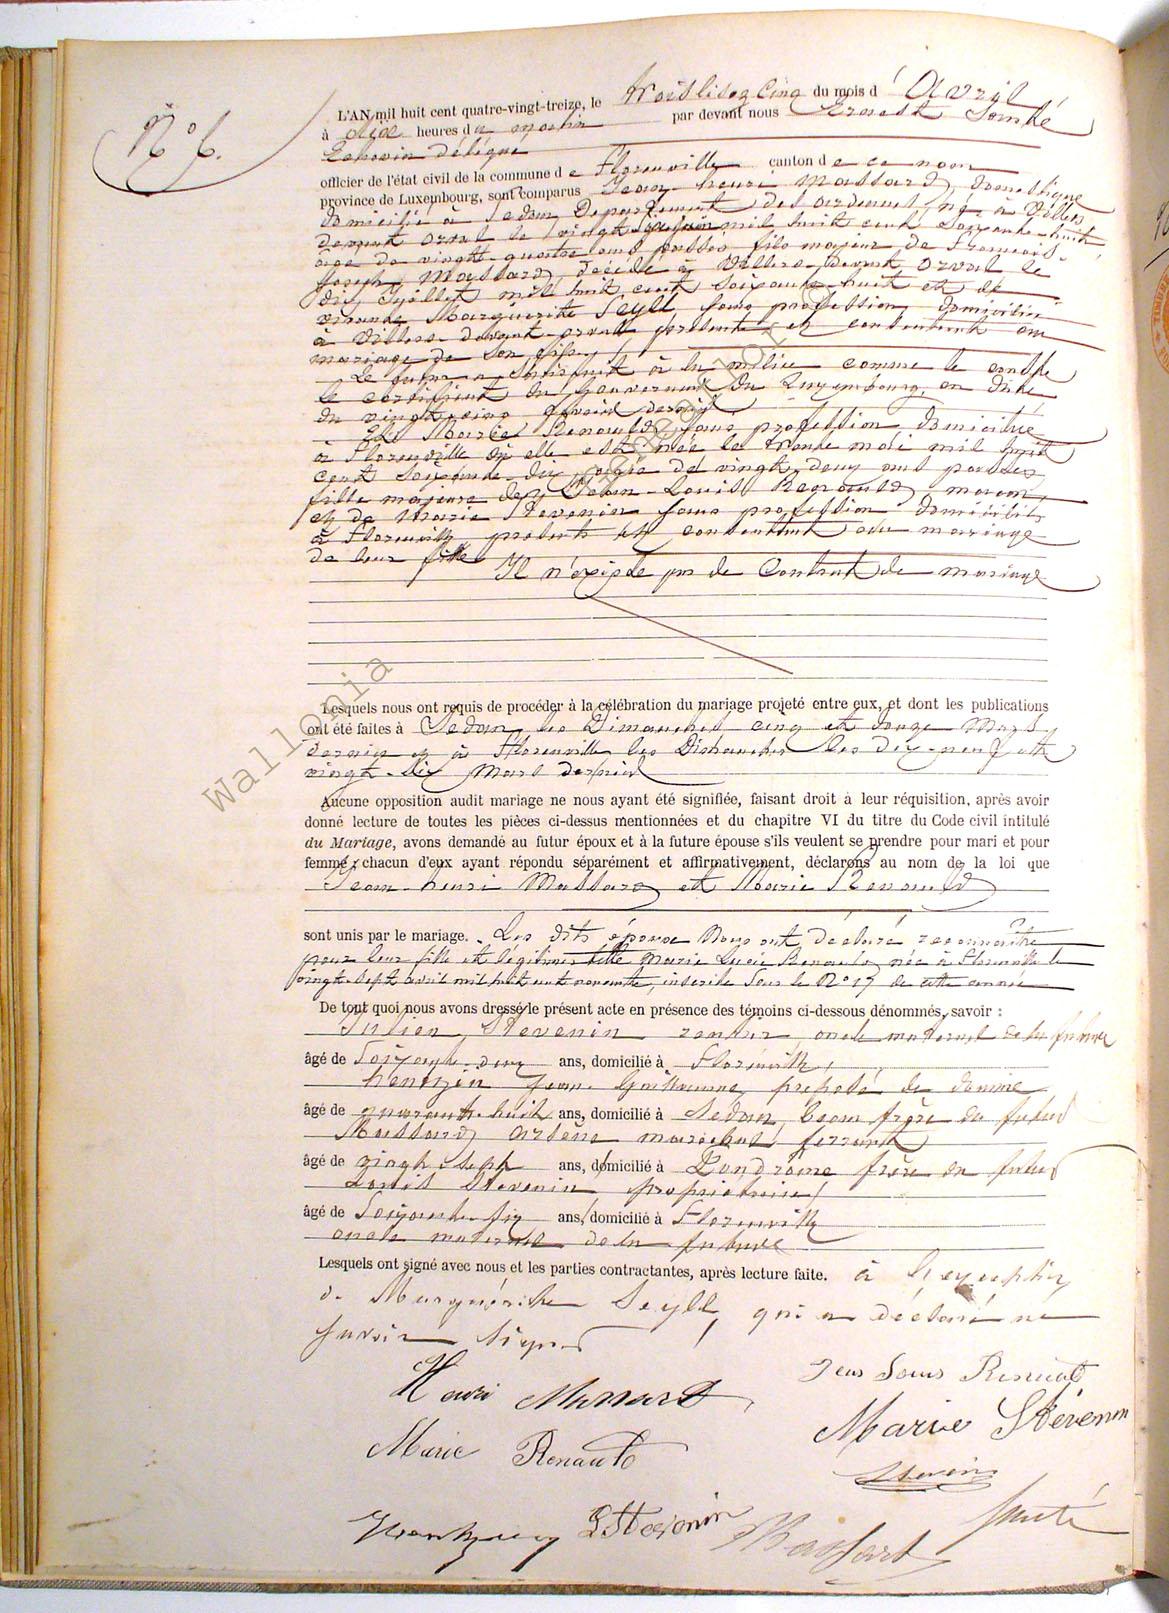 N° 6.
L'AN mil huit cent quatre-vingt-treize, le trois du mois d'Avril
à dix heures du matin par devant nous Ernest Santé
Echevin délégué
officier de l'état civil de la commune de Florenville canton de ce nom
province de Luxembourg, sont comparus Jean-henri Massard, domestique
domicilié à Sedan, Département des ardennes, né à Villers
devant Orval le vingt mil huit cent soixante-huit
âgé de vingt-quatre ans passés fils majeur de François-
Joseph Massard, décédé à Villers-devant Orval le
dix Juillet mil huit cent soixante-huit et de
vivante Marguerite Seyll, sans profession domiciliée
à Villers-devant-orval, présente et consentante au
mariage de son fils.
Le futur a satisfait à la milice comme le constate
le certificat du Gouverneur du Luxembourg, en date
du vingt-cinq février dernier
Et Marie Renauld, sans profession domiciliée
à Florenville où elle est née le trente mai mil huit
cent soixante-dix, âgée de vingt-deux ans passés
fille majeure de Jean-Louis Renauld, maçon,
et de Marie Stevenin sans profession domiciliés
à Florenville présents et consentant au mariage
de leur fille
Il n'existe pas de Contrat de mariage
Lesquels nous ont requis de procéder à la célébration du mariage projeté entre eux, et dont les publications
ont été faites à Sedan, les Dimanches cinq et douze Mars
dernier et à Florenville les Dimanches les dix-neuf et
vingt-six Mars dernier
Aucune opposition audit mariage ne nous ayant été signifiée, faisant droit à leur réquisition, après avoir
donné lecture de toutes les pièces ci-dessus mentionnées et du chapitre VI du titre du Code civil intitulé
du Mariage, avons demandé au futur époux et à la future épouse s'ils veulent se prendre pour mari et pour
femme; chacun d'eux ayant répondu séparément et affirmativement, déclarons au nom de la loi que
Jean-henri Massard et Marie Renauld
sont unis par le mariage. Les dits époux Nous ont déclaré reconnaître
pour leur fille et légitimer Marie Lucie Renauld, née à Florenville le
vingt-sept avril mil huit cent nonante, inscrite sous le N° 17 de cette année
De tout quoi nous avons dressé le présent acte en présence des témoins ci-dessous dénommés, savoir :
Julien Stevenin rentier, oncle maternel de la future
âgé de Soixante-deux ans, domicilié à Florenville,
hentzien Jean-Guillaume, préposé de
âgé de quarante-huit ans, domicilié à Sedan, beau-frère du futur
Massard Arsène maréchal ferrant
âgé de vingt-sept ans, domicilié à frère du futur
Louis Stevenin propriétaire
âgé de Soixante-six ans, domicilié à Florenville
oncle maternel de la future
Lesquels ont signé avec nous et les parties contractantes, après lecture faite. à l'exception
de Marguerite Seyll, qui a déclaré ne
savoir signer
Henri Massard
Jean Louis Renauld
Marie Stévenin
Marie Renauld
Stevenin
L Stevenin
Massard
Santé
Wallonia